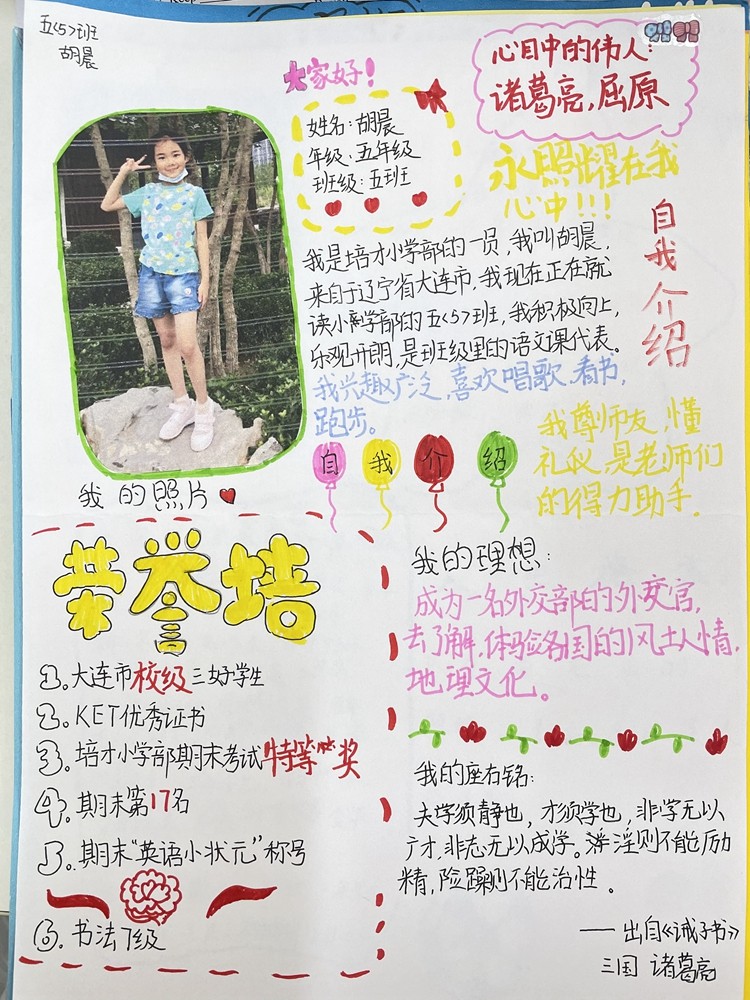 五<5>班
胡晨
大家好！
姓名：胡晨
年级：五年级
班级：五班
心目中的伟人：
诸葛亮，屈原
永照耀在我
心中！！！
自我介绍
我是培才小学部的一员，我叫胡晨，
来自于辽宁省大连市，我现在正在就
读小学部的五<5>班，我积极向上，
乐观开朗，是班级里的语文课代表。
我兴趣广泛，喜欢唱歌，看书，
跑步。
我尊师友，懂
礼仪，是老师们
的得力助手。
自 我 介 绍
我的照片
荣誉培
①.大连市校级三好学生
②.KET优秀证书
③.培才小学部期末考试特等奖
④.期末第17名
5.期末“英语小状元”称号
⑥.书法7级
我的理想：
成为一名外交部的外交官，
去了解，体验各国的风土人情，
地理文化。
我的座右铭：
夫学须静也，才须学也，非学无以
广才，非志无以成学。淫则不能励
精，险躁则不能治性。
——出自《诫子书》
三国 诸葛亮